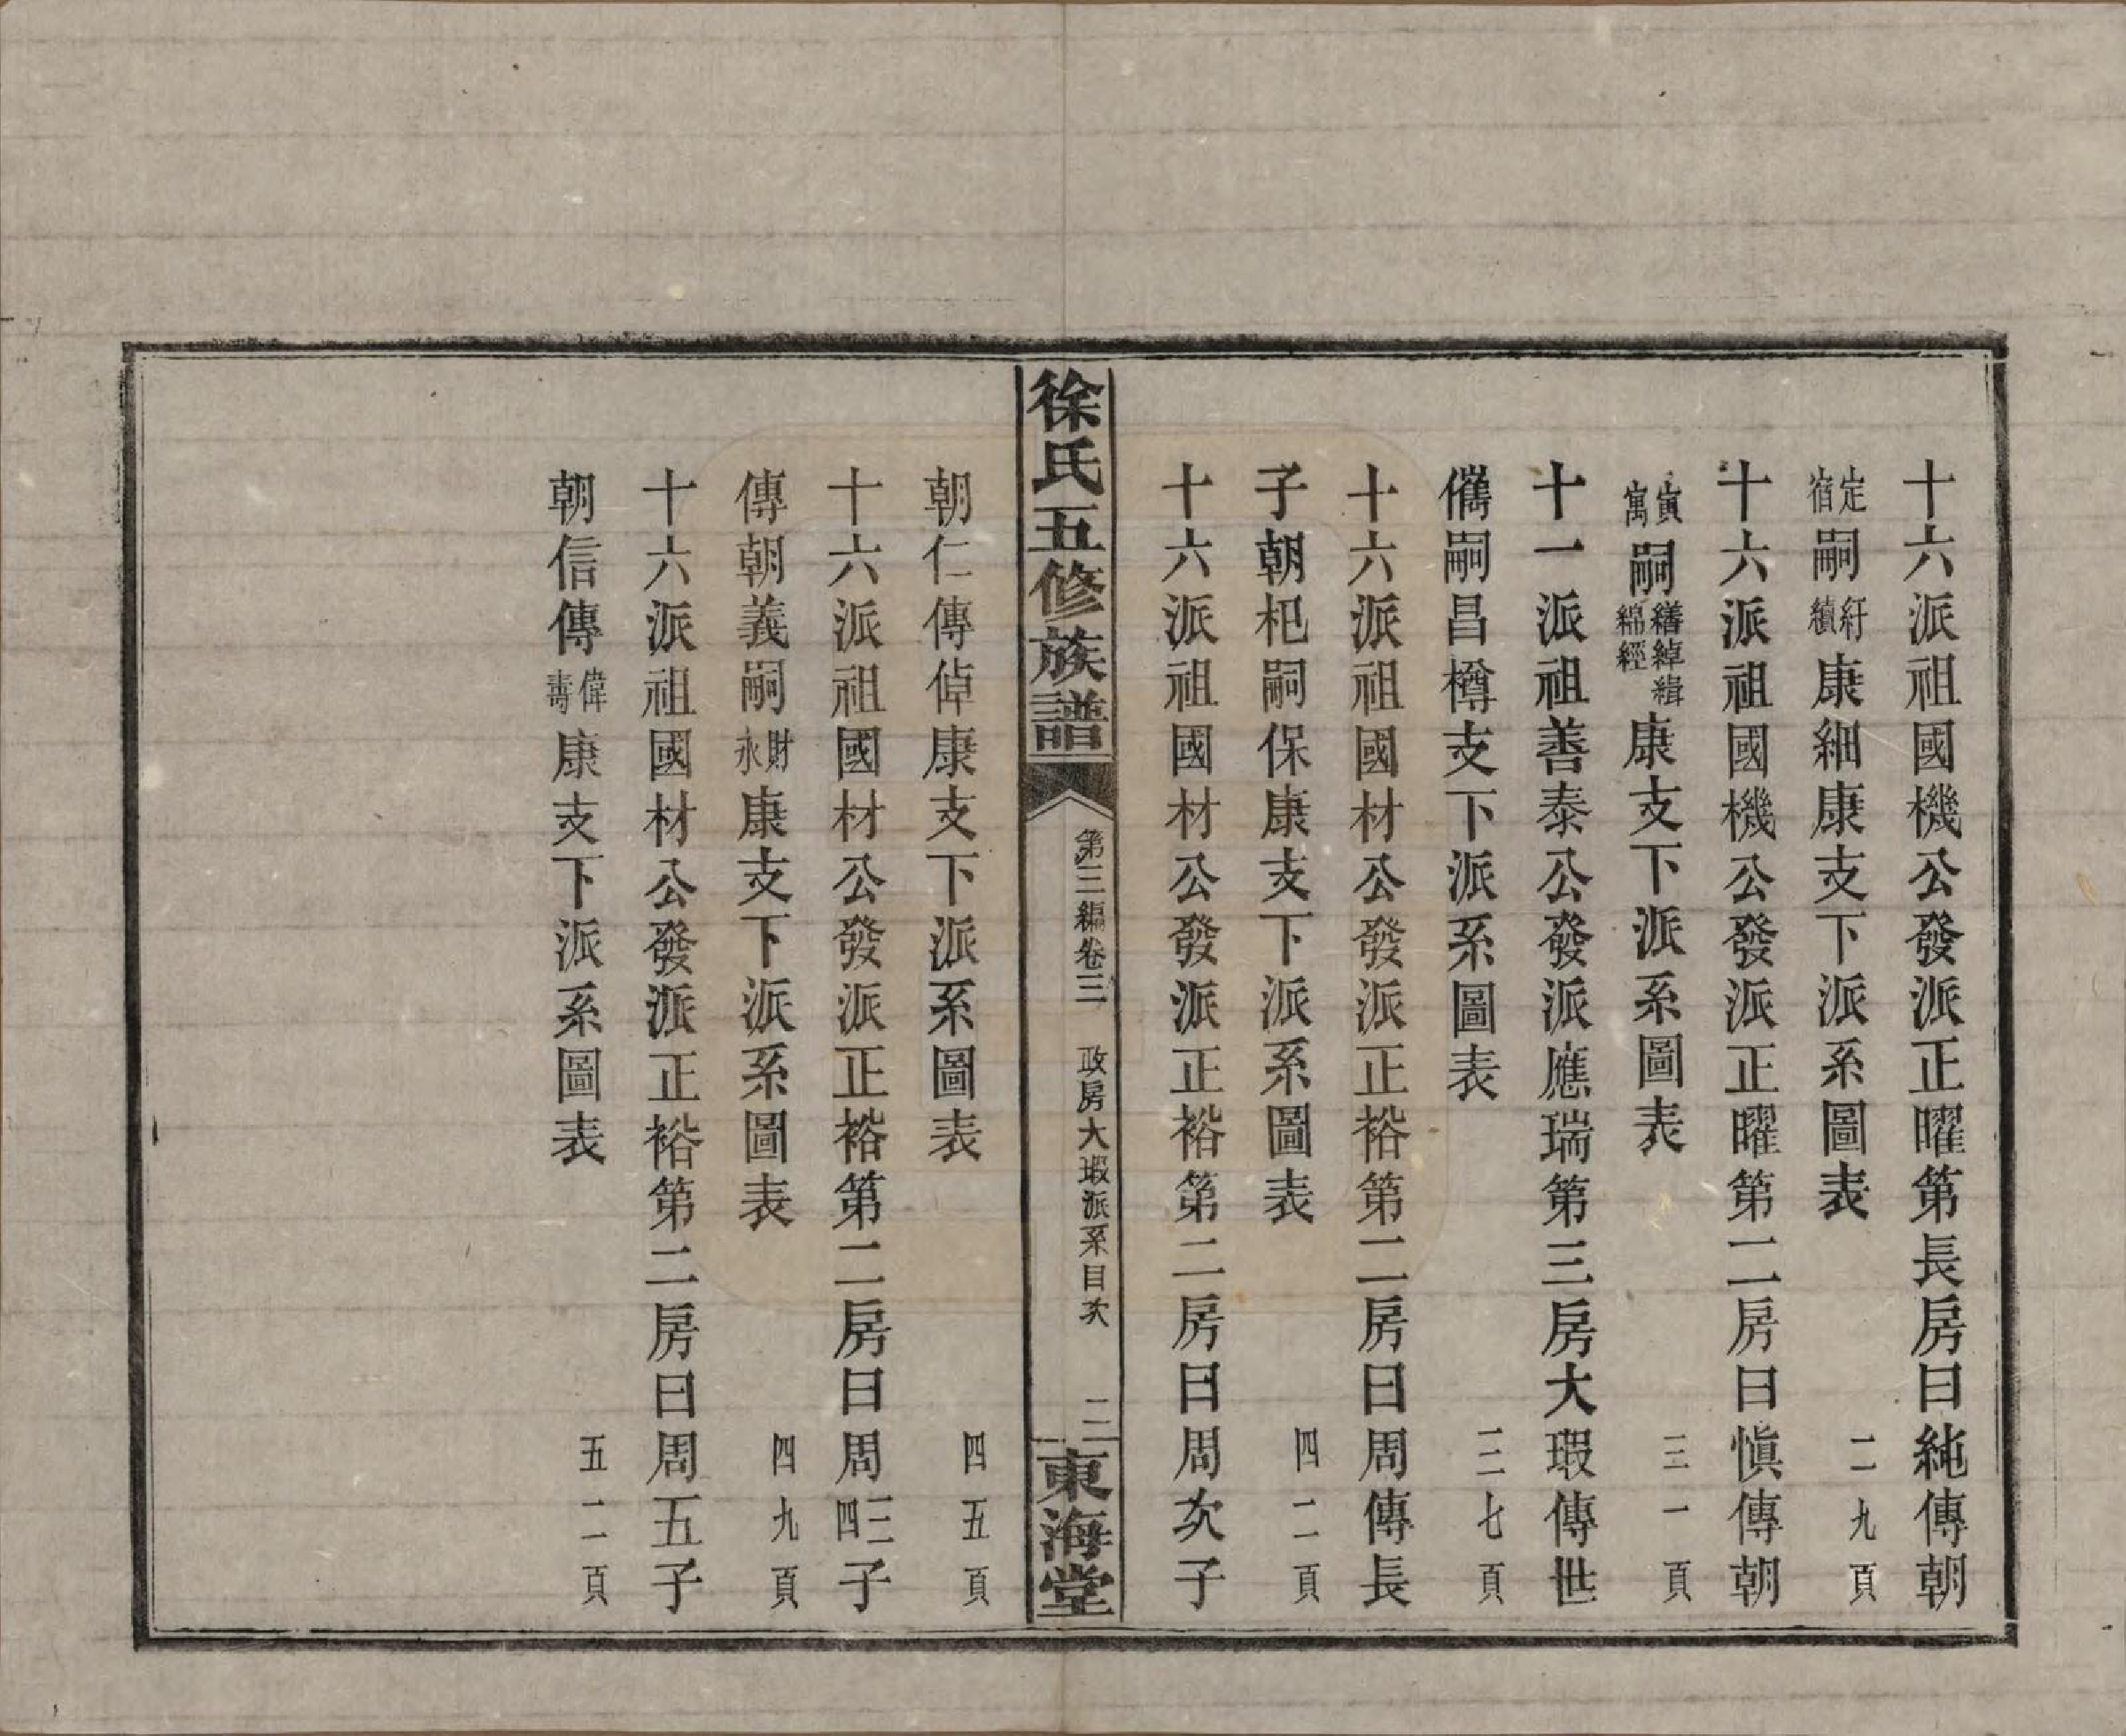 十六派祖國機公發派正曜第長房曰純傳朝
定宿嗣紆續康細康支下派系圖表 二九頁
十六派祖國機公發派正曜第二房曰慎傳朝
寅寓嗣繕綽緝綿經康支下派系圖表 三一頁
十一派祖善泰公發派應瑞第三房大瑕傳世
儁嗣昌樽支下派系圖表 三七頁
十六派祖國材公發派正裕第二房曰周傳長
子朝杞嗣保康支下派系圖表 四二頁
十六派祖國材公發派正裕第二房曰周次子
徐氏五修族譜 第三編卷三 政房大瑕派系目次 二 東海堂
朝仁傳倬康支下派系圖表 四五頁
十六派祖國材公發派正裕第二房曰周三四子
傳朝義嗣財永康支下派系圖表 四九頁
十六派祖國材公發派正裕第二房曰周五子
朝信傳偉壽康支下派系圖表 五二頁